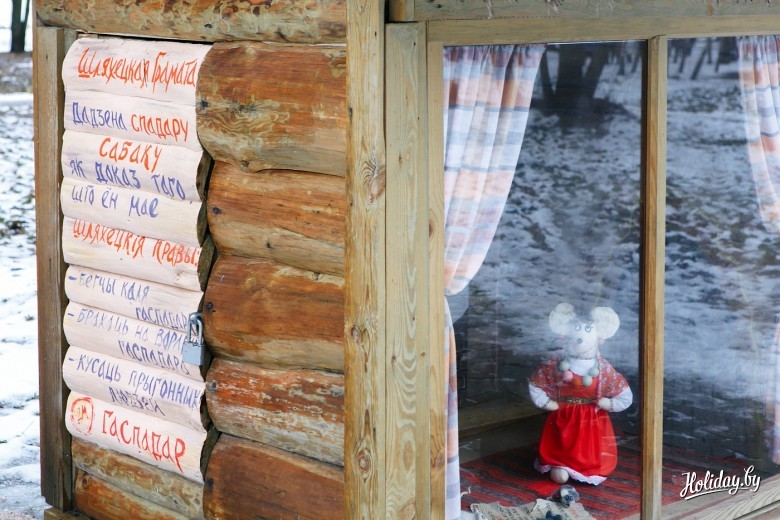 Шляхецкая Грамата
Дадзена спадару
Сабаку
як доказ того,
што ён мае
Шляхецкія правы
- Бегчы каля
гаспадара
- Брахаць на
гаспадара
- Кусаць прыгонних
людзей
Гаспадар
Holiday.by